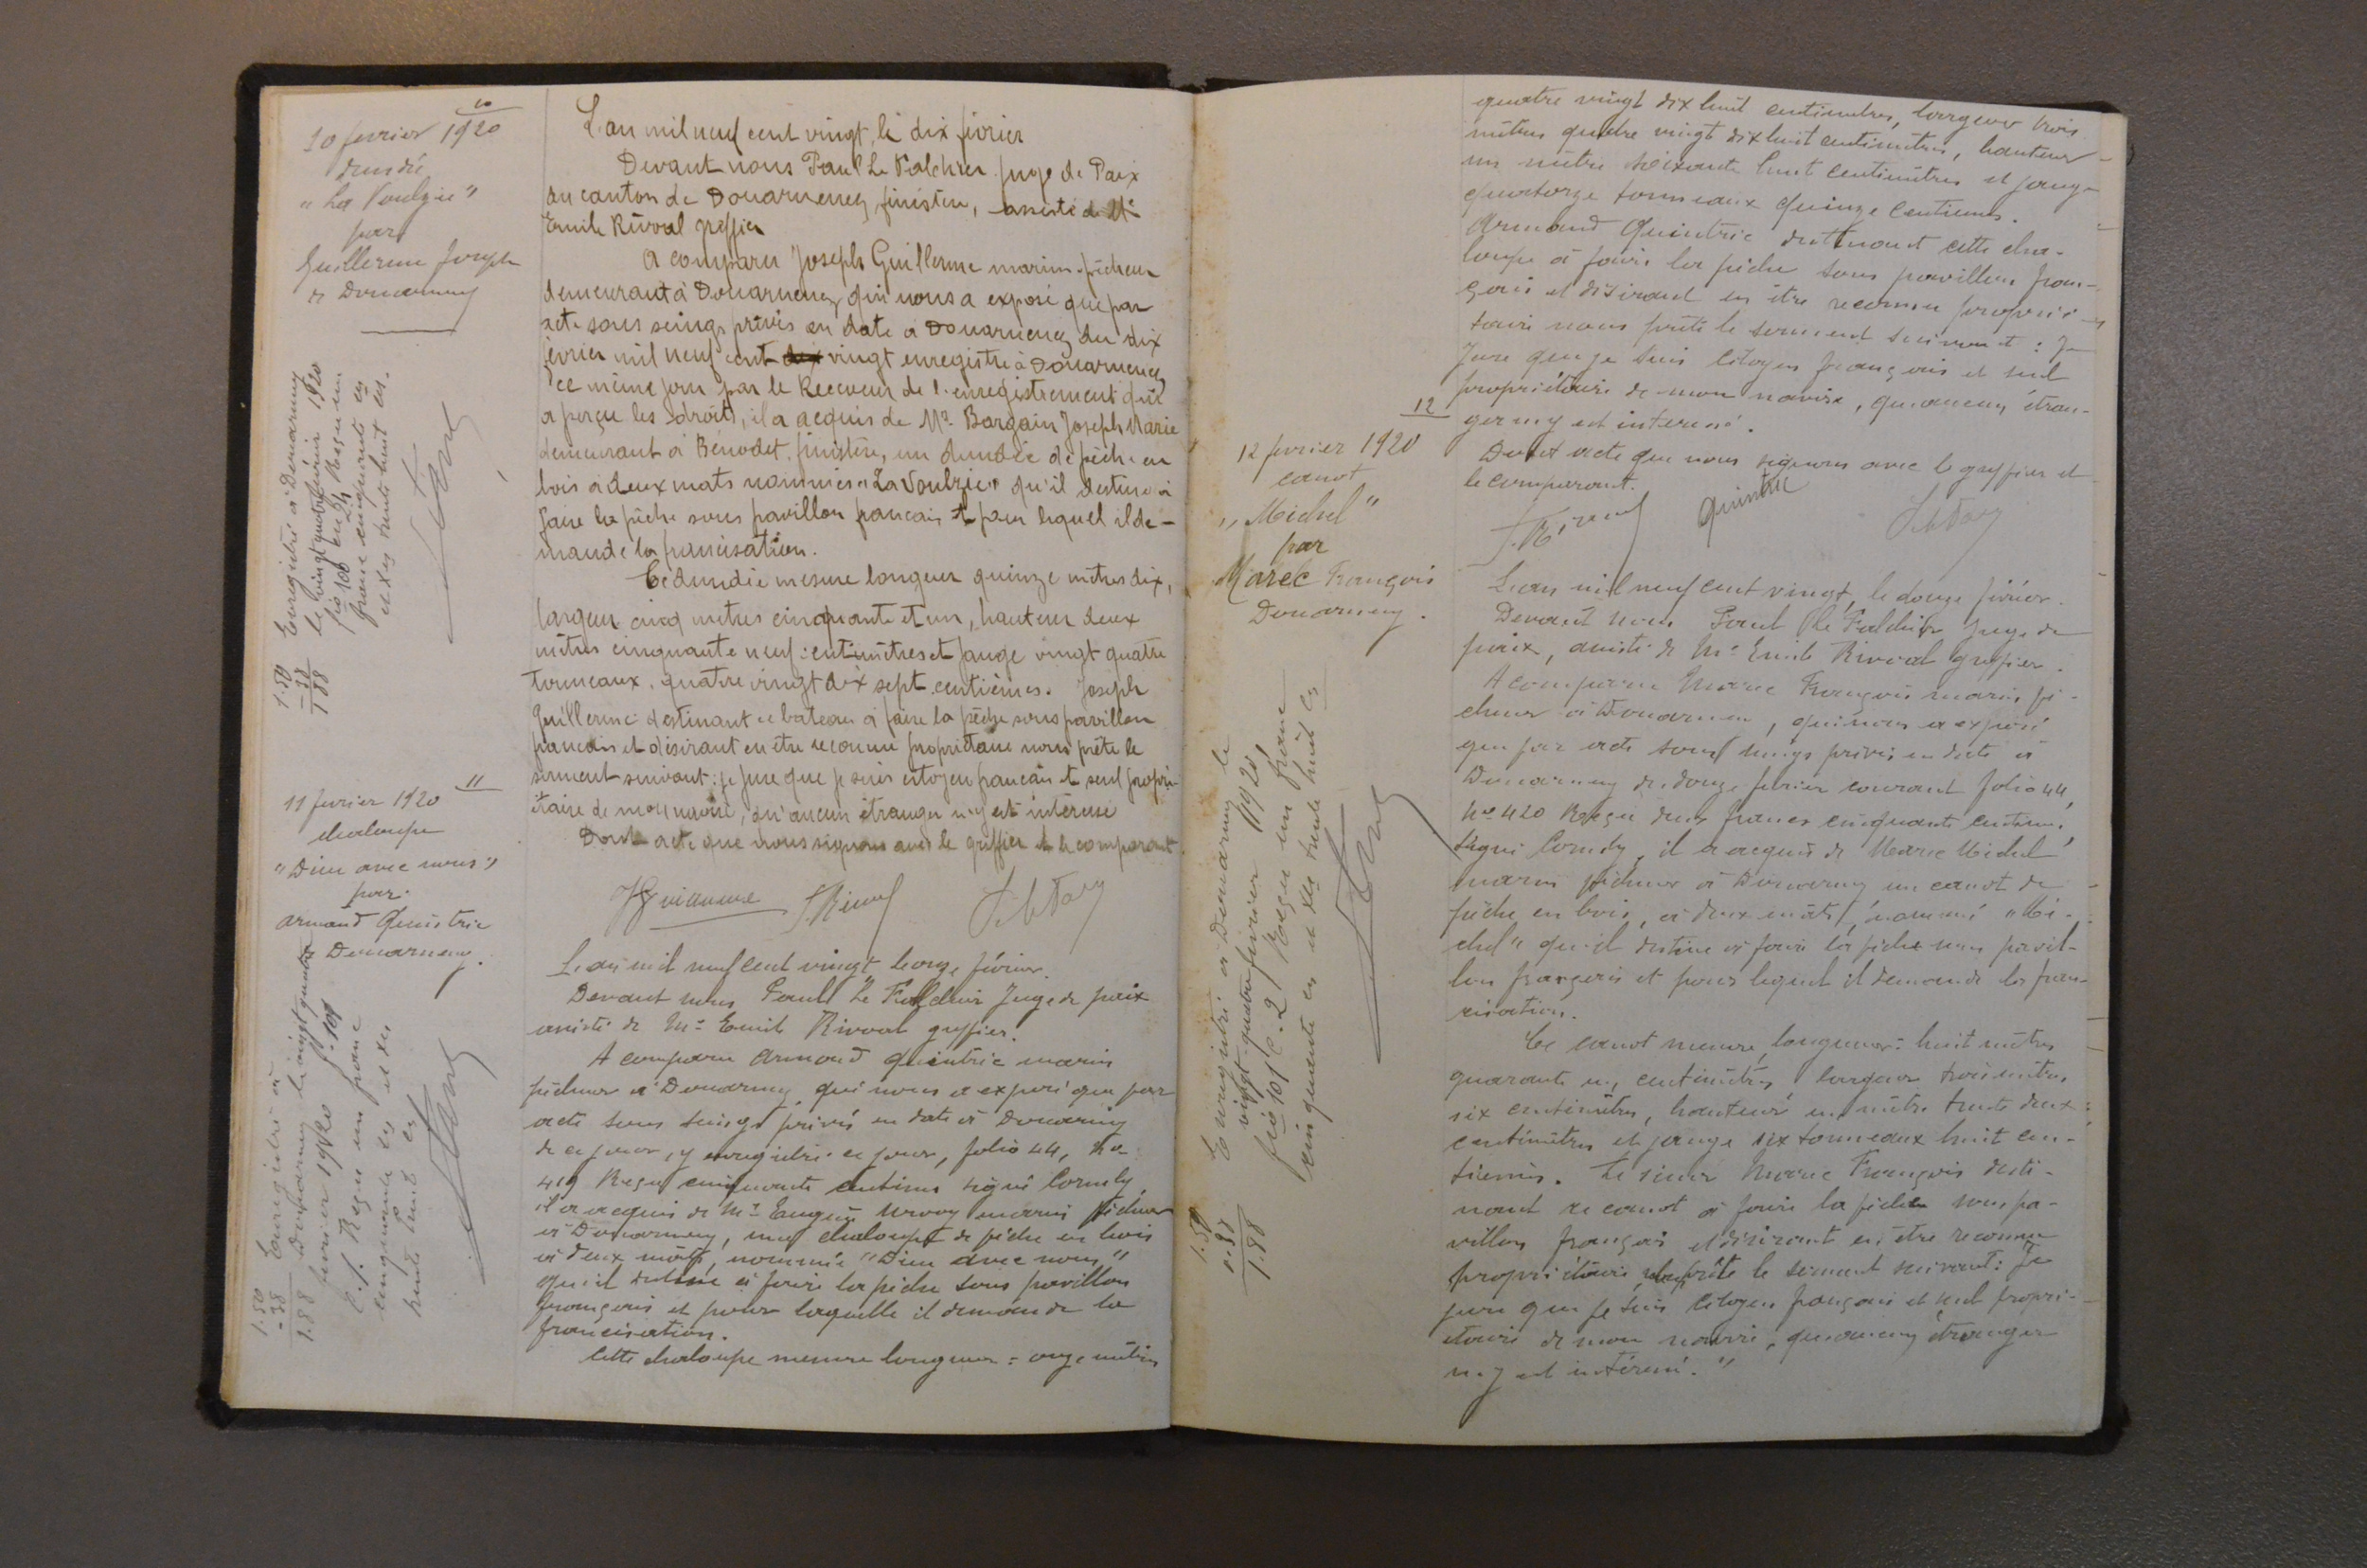 10
10 fevrier 1920
dundée
"La Voulzie"
par
Guillerme Joseph
de Douarnenez
Enregistré à Douarnenez
le vingt quatre février 1920
fio 100 Reçu un
franc cinquante ces
et xes trente huit ces.
1.50
- 38
1 88
L'an mil neuf cent vingt, le dix février
Devant nous Paul Le Falchier juge de Paix
du canton de Douarnenez, finistère, assisté de Me
Emile Rivoal greffier
A comparu Joseph Guillerme marin-pêcheur
demeurant à Douarnenez qui nous a exposé que par
acte sous seings privés en date à Douarnenez du dix
février mil neuf cent dix vingt enregistré à Douarnenez
ce même jour par le Receveur de l'enregistrement qui
a perçu les droits, il a acquis de Mr Bargain Joseph Marie
demeurant à Bénodet, finistère, un dundée de pêche en
bois à deux mats nommés "La Voulzie" qu'il destine à
faire la pêche sous pavillon francais et pour lequel il de-
mande la francisation.
Ce dundée mesure longueur quinze mètres dix,
largeur cinq mètres cinquante et un, hauteur deux
mètres cinquante neuf centimètres et jauge vingt quatre
tonneaux. quatre vingt dix sept centièmes. Joseph
Guillerme destinant ce bateau à faire la pêche sous pavillon
francais et désirant en être reconnu propriétaire nous prête le
serment suivant: je jure que je suis citoyen francais et seul propri-
étaire de mon navire, qu'aucun étranger n'y est intéressé
Dont acte que nous signons avec le greffier et le comparant
11
11 fevrier 1920
chaloupe
"Dieu avec nous"
par
Armand Quintric
Douarnenez.
Enregistré à
Douarnenez le vingt quatre
fevrier 1920 f: 101
Reçu un franc
cinquante ces et xes
trente huit ces
1.50
- 38
1.88
L'an mil neuf cent vingt le onze février.
Devant nous Paul Le Falchier Juge de paix
assisté de Me Emile Rivoal greffier.
A comparu Armand Quintric marin
pêcheur à Douarnenez, qui nous a exposé que par
acte sous seings privés en date à Douarnenez
de ce jour, y enregistré ce jour, folio 44, No
419 Reçu cinquante centimes signé Cornily,
il a acquis de Mr Eugène marin pêcheur
à Douarnenez, une chaloupe de pêche en bois
à deux mâts, nommée "Dieu avec nous"
qu'il destine à faire la pêche sous pavillon
français et pour laquelle il demande la
francisation.
Cette chaloupe mesure longueur: onze mètres
quatre vingt dix huit centimètres, largeur trois
mètres quatre vingt dix huit centimètres, hauteur
un mètre soixante huit centimètres et jauge
quatorze tonneaux quinze centièmes.
Armand Quintric destinant cette cha-
loupe à faire la pêche sous pavillon fran-
çais et désirant en être reconnu proprié-
taire nous prête le serment suivant: Je
jure que je suis citoyen français et seul
propriétaire de mon navire, qu'aucun étran-
ger n'y est intéressé.
Dont acte que nous signons avec le greffier et
le comparant.
Quintric
12
12 fevrier 1920
canot
"Michel"
par
Marec François
Douarnenez.
Enregistré à Douarnenez le
vingt-quatre février 1920
fio 101 C. 2 Reçu un franc
cinquante ces et xes trente huit ces
1.50
0.38
1.88
L'an mil neuf cent vingt, le douze février.
Devant nous Paul Le Falchier Juge de
paix, assisté de Me Emile Rivoal greffier.
A comparu Marec François marin pê-
cheur à Douarnenez, qui nous a exposé
que par acte sous seings privés en date à
Douarnenez du douze février courant folio 44,
No 420 Reçu deux francs cinquante centimes,
signé Cornily, il a acquis de Marec Michel
marin pêcheur à Douarnenez un canot de
pêche en bois, à deux mâts, nommé "Mi-
chel" qu'il destine à faire la pêche sous pavil-
lon français et pour lequel il demande la fran-
cisation.
Ce canot mesure, longueur: huit mètres
quarante un centimètres, largeur trois mètres
six centimètres, hauteur un mètre trente deux
centimètres et jauge six tonneaux huit cen-
tièmes. Le sieur Marec François desti-
nant ce canot à faire la pêche sous pa-
villon français et désirant en être reconnu
propriétaire, prête le serment suivant: Je
jure que je suis citoyen français et seul propri-
étaire de mon navire, qu'aucun étranger
n'y est intéressé."